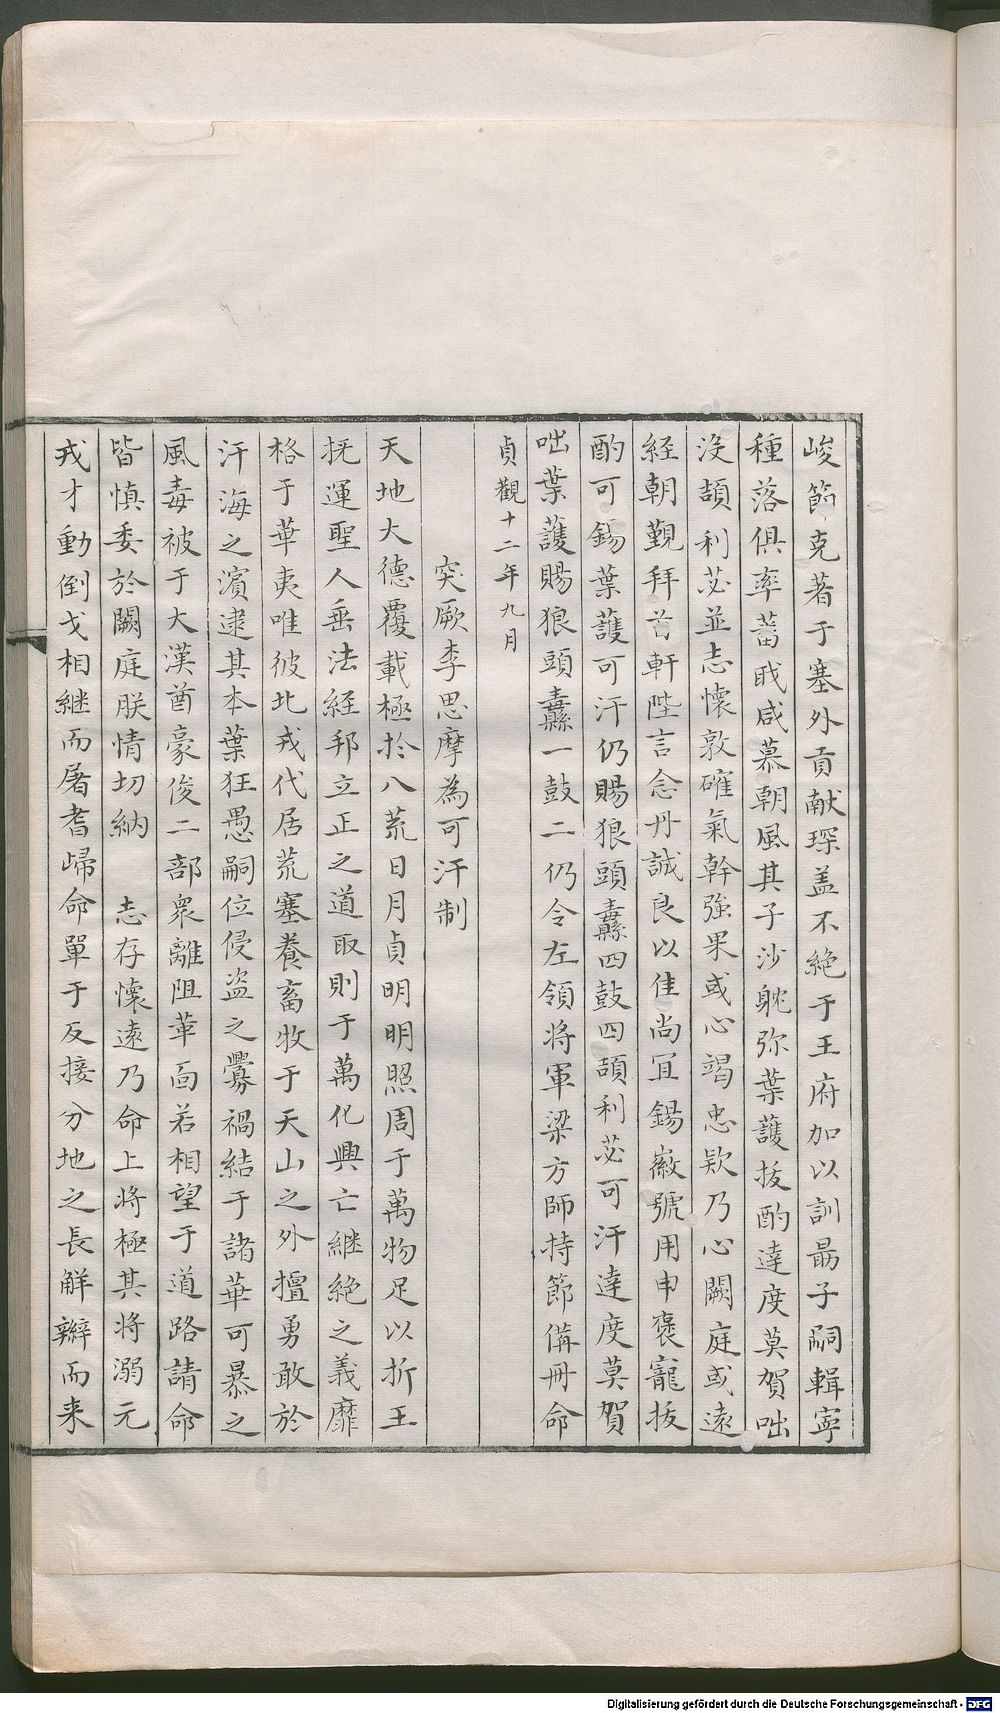 峻節克著于塞外貢献琛盖不絶于王府加以訓勗子嗣輯寧
種落俱率蕃戝咸慕朝風其子沙躭弥葉護拔酌達度莫賀咄
沒頡利苾並志懷敦確氣幹強果或心竭忠欵乃心闕庭或遠
経朝覲拜首軒陛言念丹誠良以佳尚冝錫徽號用申褒寵拔
酌可錫葉護可汗仍賜狼頭纛四鼓四頡利苾可汗達度莫賀
咄葉護賜狼頭纛一鼓二仍令左領将軍梁方師持節備冊命
貞觀十二年九月
突厥李思摩為可汗制
天地大德覆載極扵八荒日月貞明明照周于萬物足以折王
抚運聖人垂法経邦立正之道取則于萬化興亡継絶之義靡
格于華夷唯彼北戎代居荒塞養畜牧于天山之外擅勇敢於
汗海之濱逮其本葉狂愚嗣位侵盗之釁禍結于諸華可暴之
風毒被于大漢酋豪俊二部衆離阻革面若相望于道路請命
皆慎委於闕庭朕情切納 志存懷遠乃命上将極其将溺元
戎才動倒戈相継而屠耆歸命單于反接分地之長解辮而来
Digitalisierung gefördert durch die Deutsche Forschungsgemeinschaft - DFG